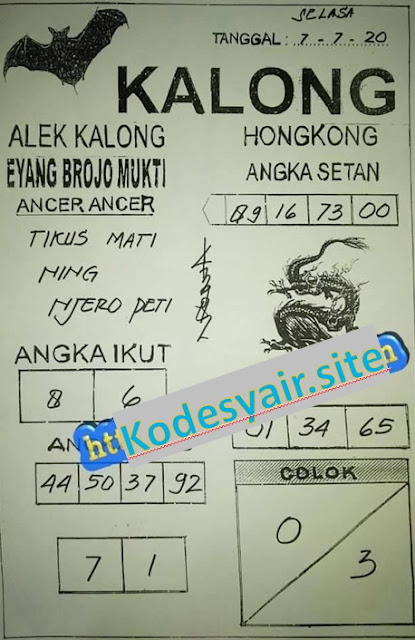 SELASA
TANGGAL : 7 - 7 - 20
KALONG
ALEK KALONG
EYANG BROJO MUKTI
ANCER ANCER
TIKUS MATI
NING
NJERO PETI
HONGKONG
ANGKA SETAN
89 16 73 00
ANGKA IKUT
8 6
Kodesyair.site
44 50 37 92
34 65
7 1
COLOK
0
3